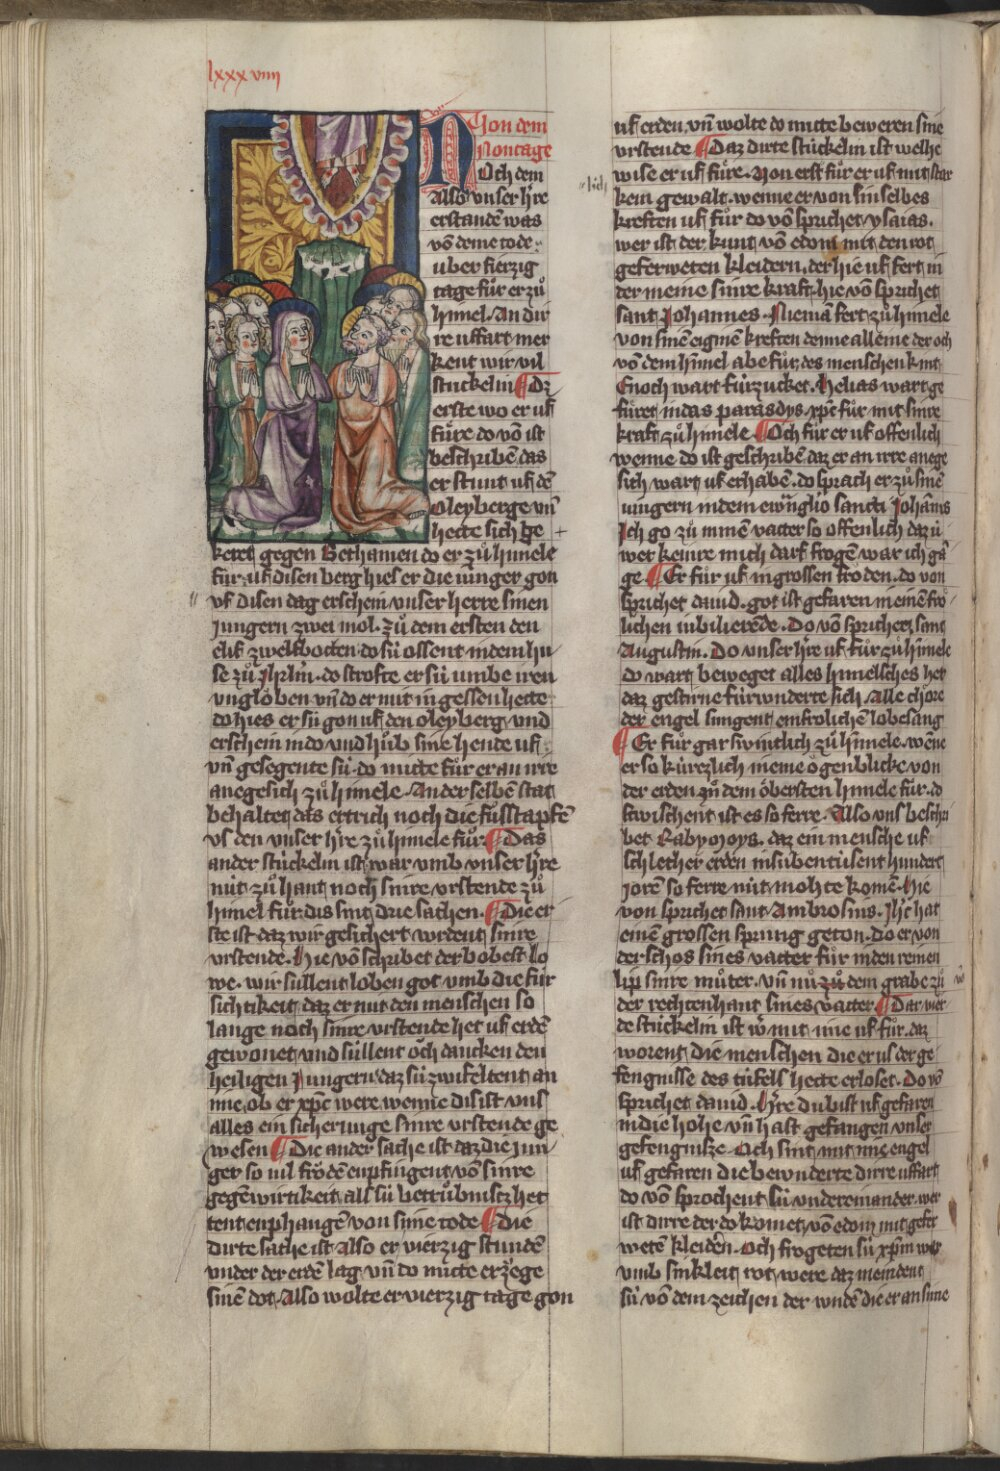 lxxxviiij
Von dem
Nontage
Noch dem
Also vnser h're
erstandē was
vō deme tode
uber fierzig
tage fůr er zů
himel. An dir
re uffart mer
kent wir vil
stuckelin ¶ Dz
erste wo er uf
fůre do vō ist
beschribē das
er stunt uf dē
Oleyberge vn̄
hette sich be
keret gegen Bethanien do er zů himele
fůr. uf disen berg hies er die iunger gon
vf disen dag erschein vnser herre sinen
Jungern zwei mol. zů dem ersten den
elif zwelfbotten do sù ossent in dem hu
se zů Jhrlm̄. do strofte er sù umbe iren
unglöben vn̄ do er mit in gessen hette
do hies er sù gon uf den oleyberg vnd
erschein in do vnd hůb sine hende uf
vn̄ gesegente sù. do mitte fůr er an irre
anegesich zů himele. An der selben stat
behaltet das ertrich noch die fůsstapfē
vs den vnser h're zů himele fůr ¶ Das
ander stùckelin ist war vmb vnser h're
nùt zů hant noch sinre vrstende zů
himel fůr dis sint drie sachen. ¶ Die er
ste ist daz wir gesichert wrdent sinre
vrstende. Hie vō schribet der bobest lo
we. wir sùllent loben got vmb die fùr
sichtikeit daz er mit den menschen so
lange noch sinre vrstende het uf erdē
gewonet vnd sùllent och dancken den
heiligen Jungern daz sù zwifeltent an
ime ob er xp̄c were wenne dis ist vns
alles ein sicherunge sinre vrstende ge
wesen ¶ Die ander sache ist daz die iun
ger so vil frödē enpfingent vō sinre
gegēwirtikeit als sù betrůbnisz het
tent enphangē von sime tode ¶ die
dirte sache ist also er vierzig stundē
vnder der erdē lag vn̄ do mitte erzege
sinē dot. Also wolte er vierzig tage gon
uf erden. vn̄ wolte do mitte beweren sine
vrstende ¶ Daz dirte stùckelin ist welhe
wise er uf fůre. Non erst fůr er uf mit star
lich
kem gewalt. wenne er von sin selbes
kreften uf fůr do vō sprichet ysaias.
wer ist der kunt vō edom mit den rot
geferweten kleidern. der hie uf fert in
der meine sinre kraft. hie vō sprichet
sant Johannes. Niemā fert zů himele
von sinē eiginē kreften denne alleine der och
vō dem himel abe fůr des menschen kint
Enoch wart fùrzucket. Helias wart ge
fůret in das paradys. xp̄c fůr mit sinre
kraft zů himele. ¶ Och fůr er uf offenlich
wenne do ist geschribē daz er an irre anege
sich wart uf erhabē. do sprach er zů sinē
iungern in dem ewāglio sancti Johānis
Ich go zů minē vatter so offenlich daz ù
wer keinre mich darf frogē war ich gā
ge. ¶ Er fůr uf in grossen fröden. do von
sprichet dauid. got ist gefaren in einē frö
lichen iubilierēde. Do vō sprichet sant
Augustin. Do vnser h're uf fůr zů himele
do wart beweget alles himelsches her
daz gestirne fùrwnderte sich. Alle chöre
der engel singent ein frolichē lobesang
¶ Er fůr gar swintlich zů himele. wēne
er so kùrzlich in eime ögenblicke von
der erden zů dem öbersten himele fůr. do
zwischent ist es so ferre. Also vns beschri
bet Rabymoys. daz ein mensche uf
schlether erden in sùbentusent hundert
joren so ferre nùt mohte komē. Hie
von sprichet sant Ambrosius. Jh'c hat
einē grossen sprung geton. do er von
der schos sines vatter fůr in den reinen
lip sinre můter. vn̄ nů zů dem grabe zů
der rechten hant sines vatter ¶ Dar vier
de stùckelin ist w' mit ime uf fůr. daz
worent die menschen die er us der ge
fengnisse des tùfels hette erloset. Do vō
sprichet dauid. H're du bist uf gefaren
in die hohe vn̄ hast gefangen vnser
gefengnisze. Och sint mit ime engel
uf gefaren die bewnderte dirre uffart
do vō sprochent sù vnder einander. wer
ist dirre der do komet vō edom mit gefer
wetē kleidēn. Och frogeten sù xp̄m war
vmb sin kleit rot were daz meindent
sù vō dem zeichen der wndē die er an sime